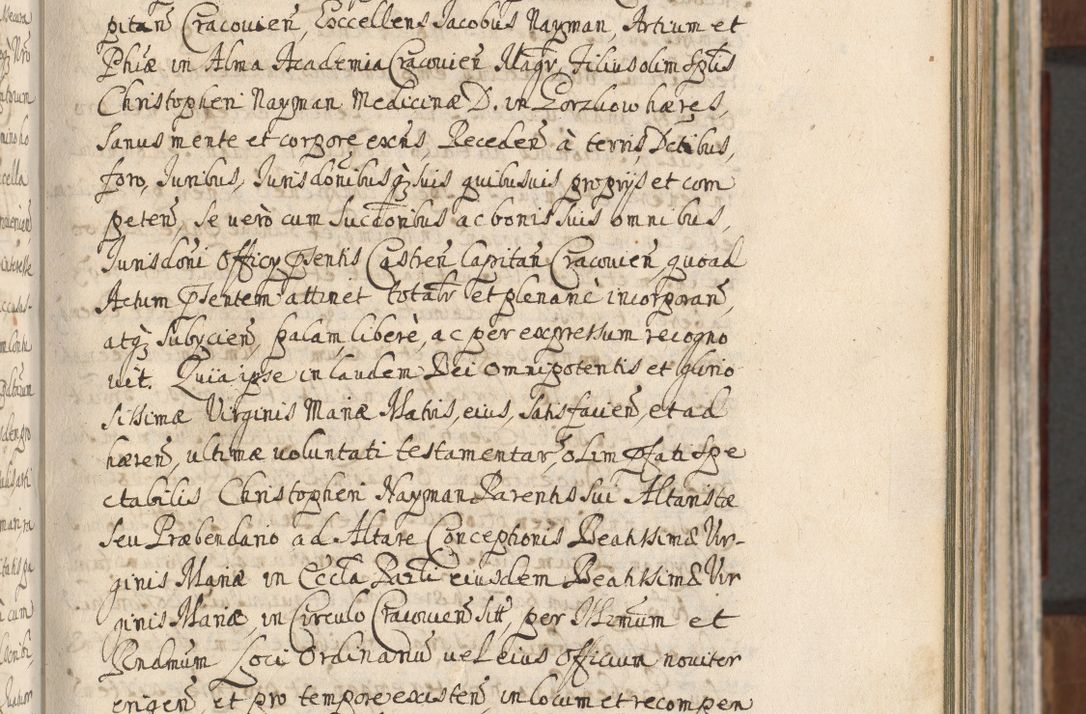 pitan Cracovien, Excellens Jacobus Nayman, Artium et
Phiæ in Alma Academia Cracovien Magr, Filius olim Sptis
Christopheri Nayman Medicinæ D. in Gorzkow hæres,
Sanus mente et corpore exns, Receden à terris, Dctibus,
foro, Juribus, Jurisdonibusq suis quibusuis proprijs et com
peten Se verò cum Sucdonibus ac bonis suis omnibus,
Jurisdoni Officy Psentis Castren Capitan Cracovien quoad
Actum Psentem attinet totalr et plenariè incorporan,
atq Subycien, palam, liberè, ac per expressum recogno
uit. Quia ipse in laudem Dei omnipotentis et glorio
sissimæ Virginis Mariæ Matris, eius, satisfacien, et ad
hæren, ultimæ uoluntati testamentar, olim Pfati Spe
ctabilis Christopheri Nayman Parentis sui Altaristæ
seu Præbendario ad Altare Conceptionis Beatissimæ Vir-
ginis Mariæ in Eccla Parli eiusdem Beatissimæ Vir
ginis Mariæ, in Circulo Cracovien sitt, per Illrmum et
Rndmum Loci Ordinariu uel eius Officium noviter
erigen, et pro tempore existen, in locum et recompen